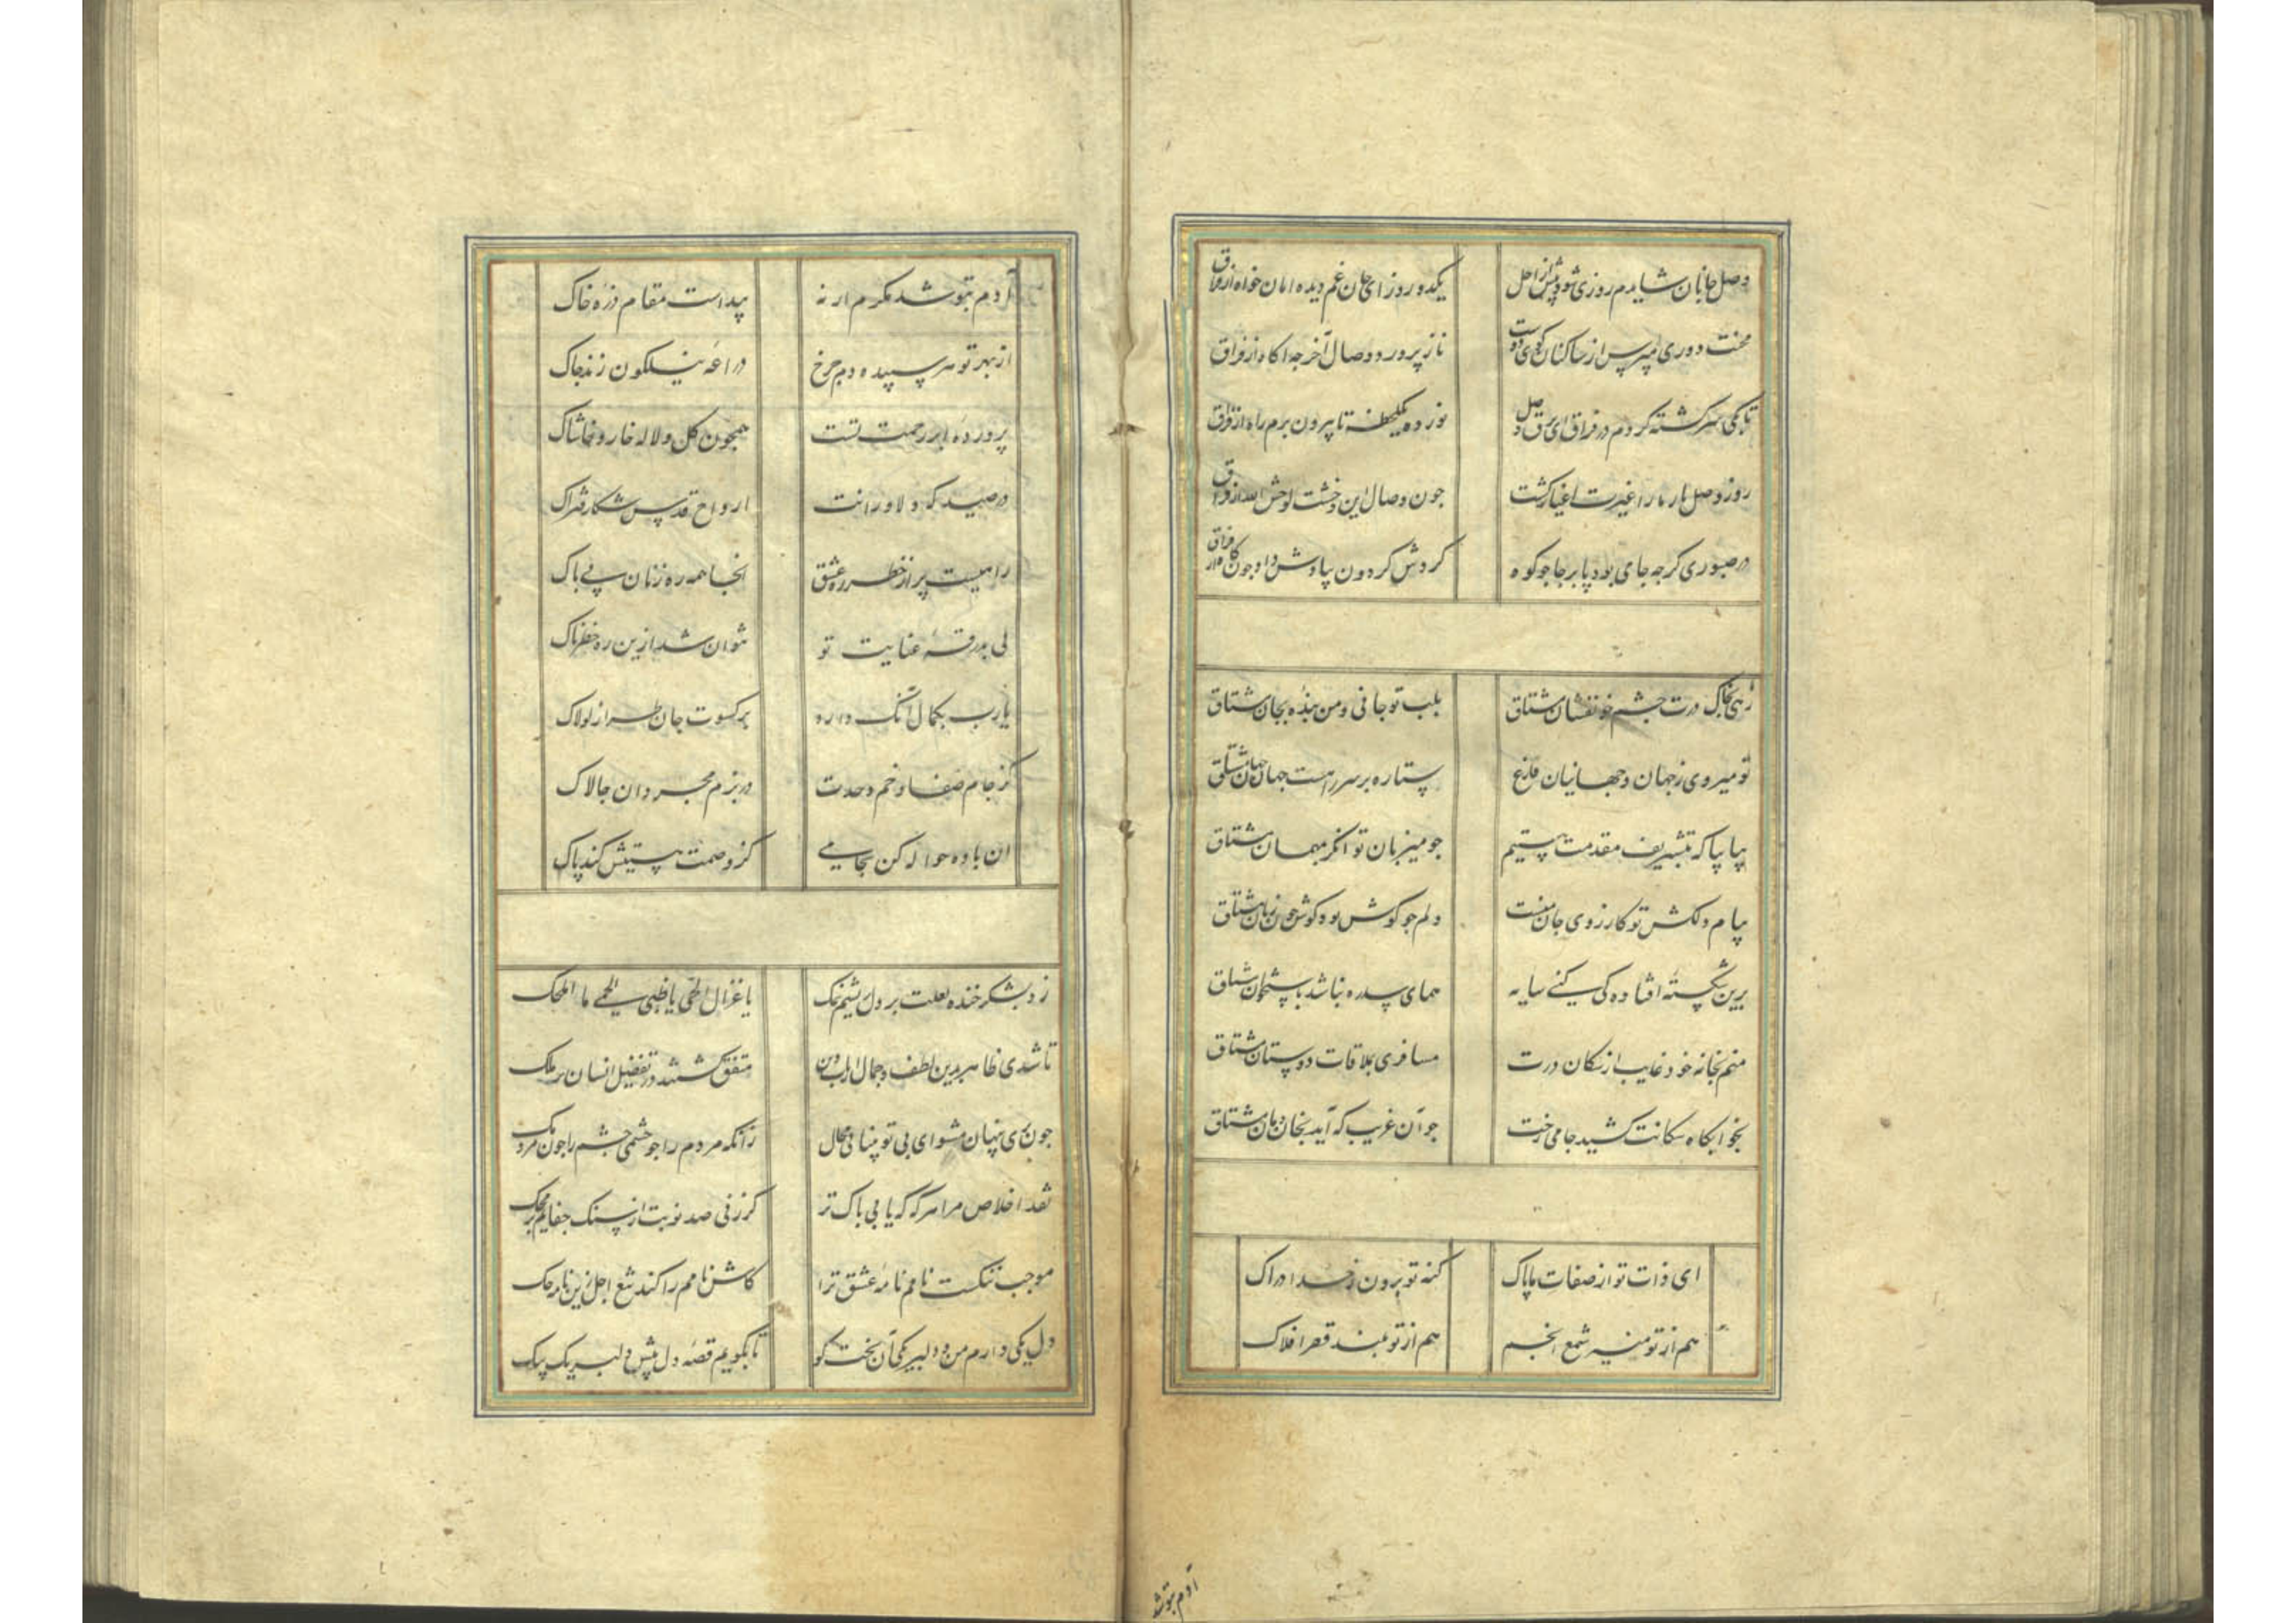 وصل جانان شایدم روزی شود پیش از اجل یکدو روز ای جان غم دیده امان خواه از فراق
محنت دوری مپرس از ساکنان کوی دوست ناز پرورد وصال آخر چه آکاه از فراق
تا بکی سرکشته کردم در فراق ای برق وصل نور ده یک لحظه تا بیرون برم راه از فراق
روز وصل یار ما را غیرت اغیار کشت چون وصال این وحشت لوحش الله از فراق
در صبوری کرچه جامی بود پا بر جا چو کوه کردش کردون بیادش داد چون کاه از فراق
زهی بخاک درت چشم خونفشان مشتاق بلب تو جانی و من بنده بجان مشتاق
تو میروی ز جهان و جهانیان فارغ ستاده بر سر راهت جهان جهان مشتاق
بیا بیا که بتشریف مقدمت هستیم چو میزبان توانکر بمیهمان مشتاق
پیام دلکش تو کارزوی جان منست دلم چو کوش بود کوش چون زبان مشتاق
برین شکسته افتاده کی کنی سایه همای سدره نباشد باستخوان مشتاق
منم بخانه خود غایب از سکان درت مسافری بملاقات دوستان مشتاق
بخوابکاه سکانت کشید جامی رخت چو آن غریب که آید بخان و مان مشتاق
ای ذات تو از صفات ما پاک کنه تو برون ز حد ادراک
هم از تو منیر شمع انجم هم از تو بلند قصر افلاک
آدم بتو شد
آدم بتو شد مکرم ار نه پیداست مقام ذره خاک
از بهر تو هر سپیده دم چرخ دراعه نیلکون زند چاک
پرورده ابر رحمت تست همچون کل و لاله خار و خاشاک
در صید که دلاورانت ارواح قدس شکار فتراک
راهیست پر از خطر ره عشق آنجا همه ره زنان بی باک
بی بدرقه عنایت تو نتوان شد ازین ره خطرناک
یارب بکمال آنک دارد بر کسوت جان طراز لولاک
کز جام صفا و خم وحدت در بزم مجردان چالاک
آن باده حواله کن بجامی کز وصمت هستیش کند پاک
زد بشکر خنده لعلت بر دل ریشم نمک یا غزال الحی یا ظبی الحمی ما املحک
تا شدی ظاهر بدین لطف و جمال ارباب دین متفق کشتند در تفضیل انسان بر ملک
چون پری پنهان مشو ای بی تو بینائی محال زانکه مردم را چو چشمی چشم را چون مردمک
نقد اخلاص مرا هر که که یابی پاک تر کر زنی صد نوبت از سنک جفایم بر محک
موجب ننکست نامم نامه عشق ترا کاش نامم را کند تیغ اجل زین نامه حک
دل یکی دارم من و دلبر یکی آن بخت کو تا بکویم قصه دل پیش دلبر یک بیک